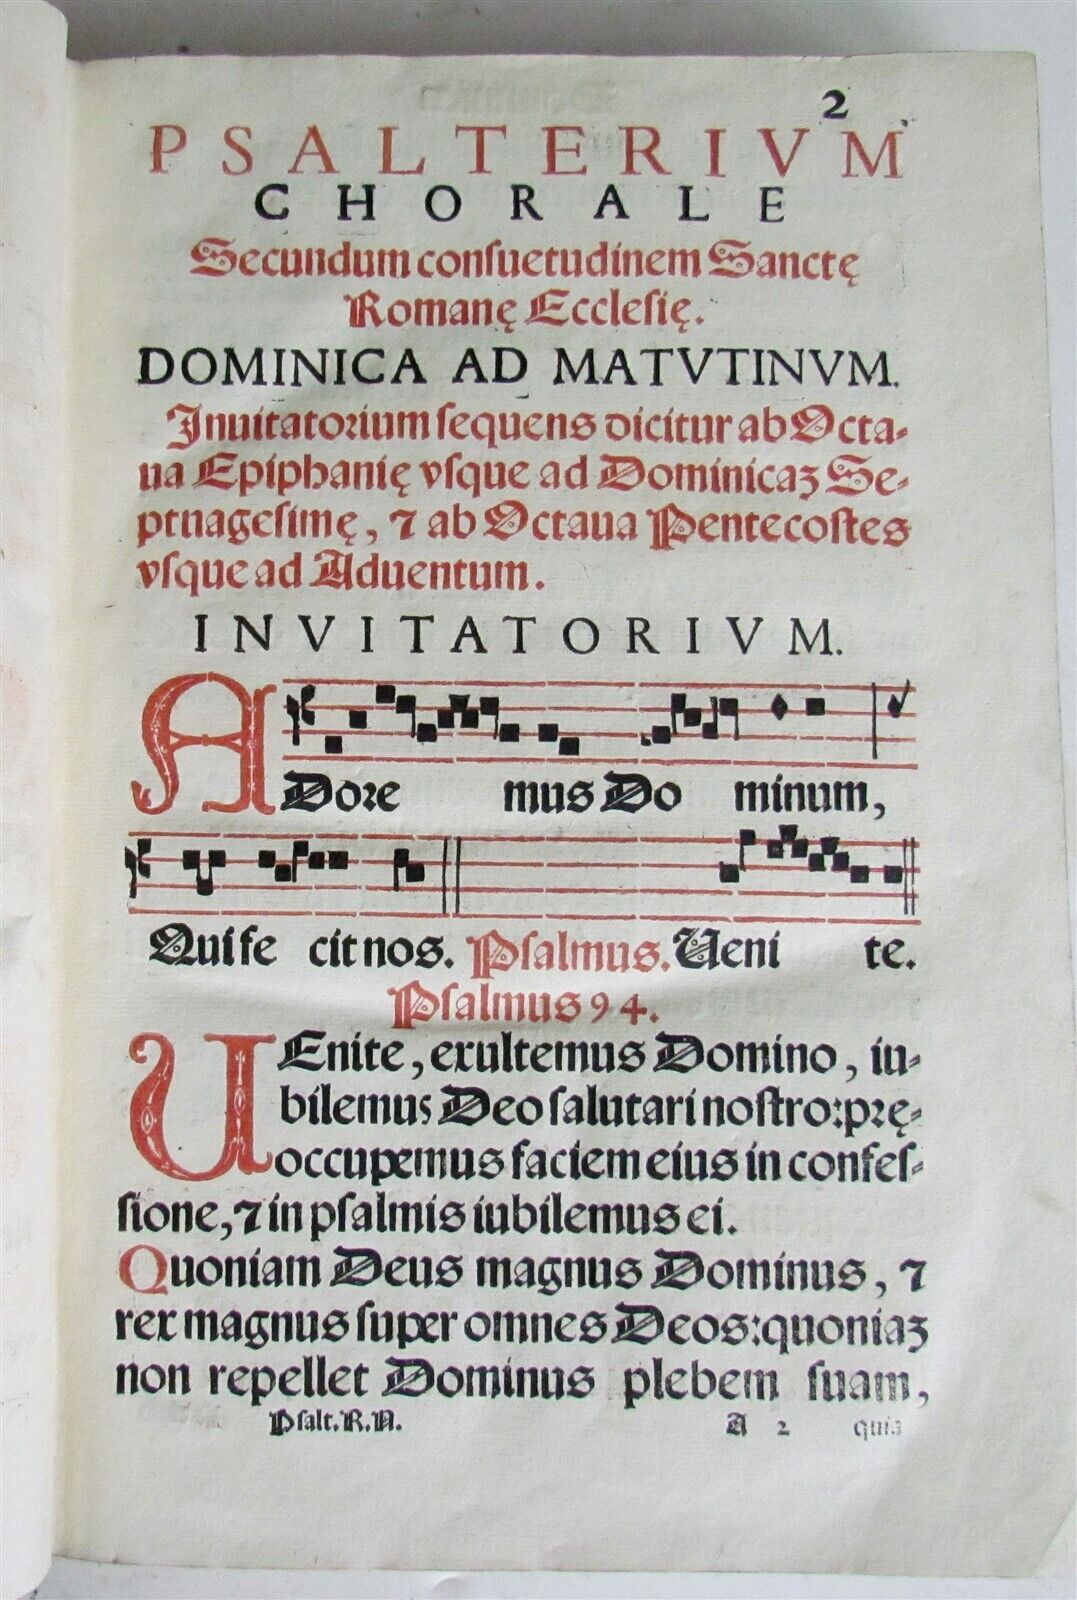 2
PSALTERIVM
CHORALE
Secundum conſuetudinem Sanctę
Romanę Eccleſię.
DOMINICA AD MATVTINVM.
Inuitatorium ſequens dicitur ab Octa-
ua Epiphanię vſque ad Dominicaʒ Se-
ptuageſimę, ⁊ ab Octaua Pentecoſtes
vſque ad Aduentum.
INVITATORIVM.
ADoꝛe mus Do minum,
Qui fe cit nos. Pſalmus. Ueni te.
Pſalmus 94.
UEnite, exultemus Domino, iu-
bilemus Deo ſalutari noſtro: pꝛę-
occupemus faciem eius in confeſ-
ſione, ⁊ in pſalmis iubilemus ei.
Quoniam Deus magnus Dominus, ⁊
rex magnus ſuper omnes Deos: quoniaʒ
non repellet Dominus plebem ſuam,
Pſalt. R. N. A 2 quia